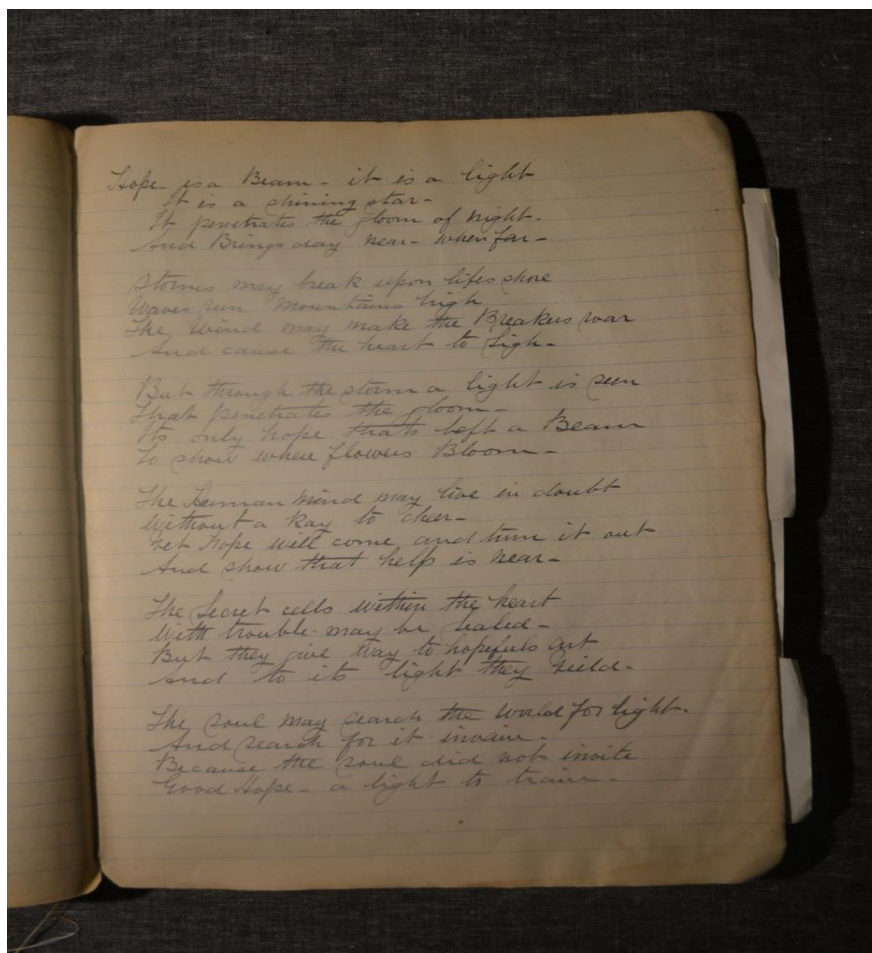 Hope is a Beam - it is a light
It is a shining star -
It penetrates the gloom of night -
And Brings day near - when far -
Storms may break upon lifes shore
Waves run Mountains high
The Wind may make the Breakers roar
And cause the heart to Sigh -
But through the storm a light is seen
That penetrates the gloom -
Its only hope thats left a Beam
To show where flowers Bloom -
The human Mind may live in doubt
Without a Ray to cheer -
Yet hope will come and turn it out
And show that help is near -
The Secret cells within the heart
With trouble may be Sealed -
But they give Way to hopefuls art
And to its light they Yield -
The soul may search the World for light -
And search for it invain -
Because the soul did not invite
Good Hope - a light to train -